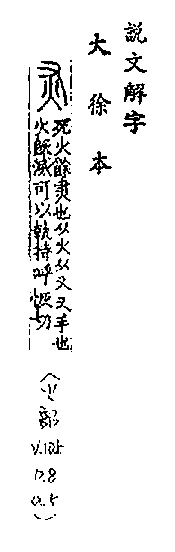 說文解字
大徐本
灰
死火餘㶳也从火从又又手也
火既滅可以執持呼恢切
(火部